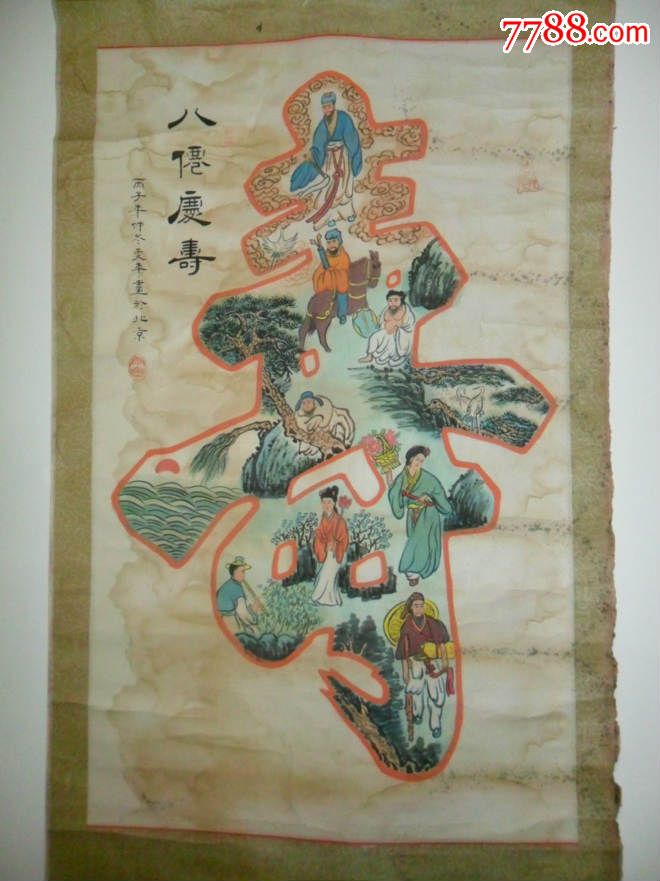 7788.com
八僊慶壽
丙子年仲冬爱年畫於北京